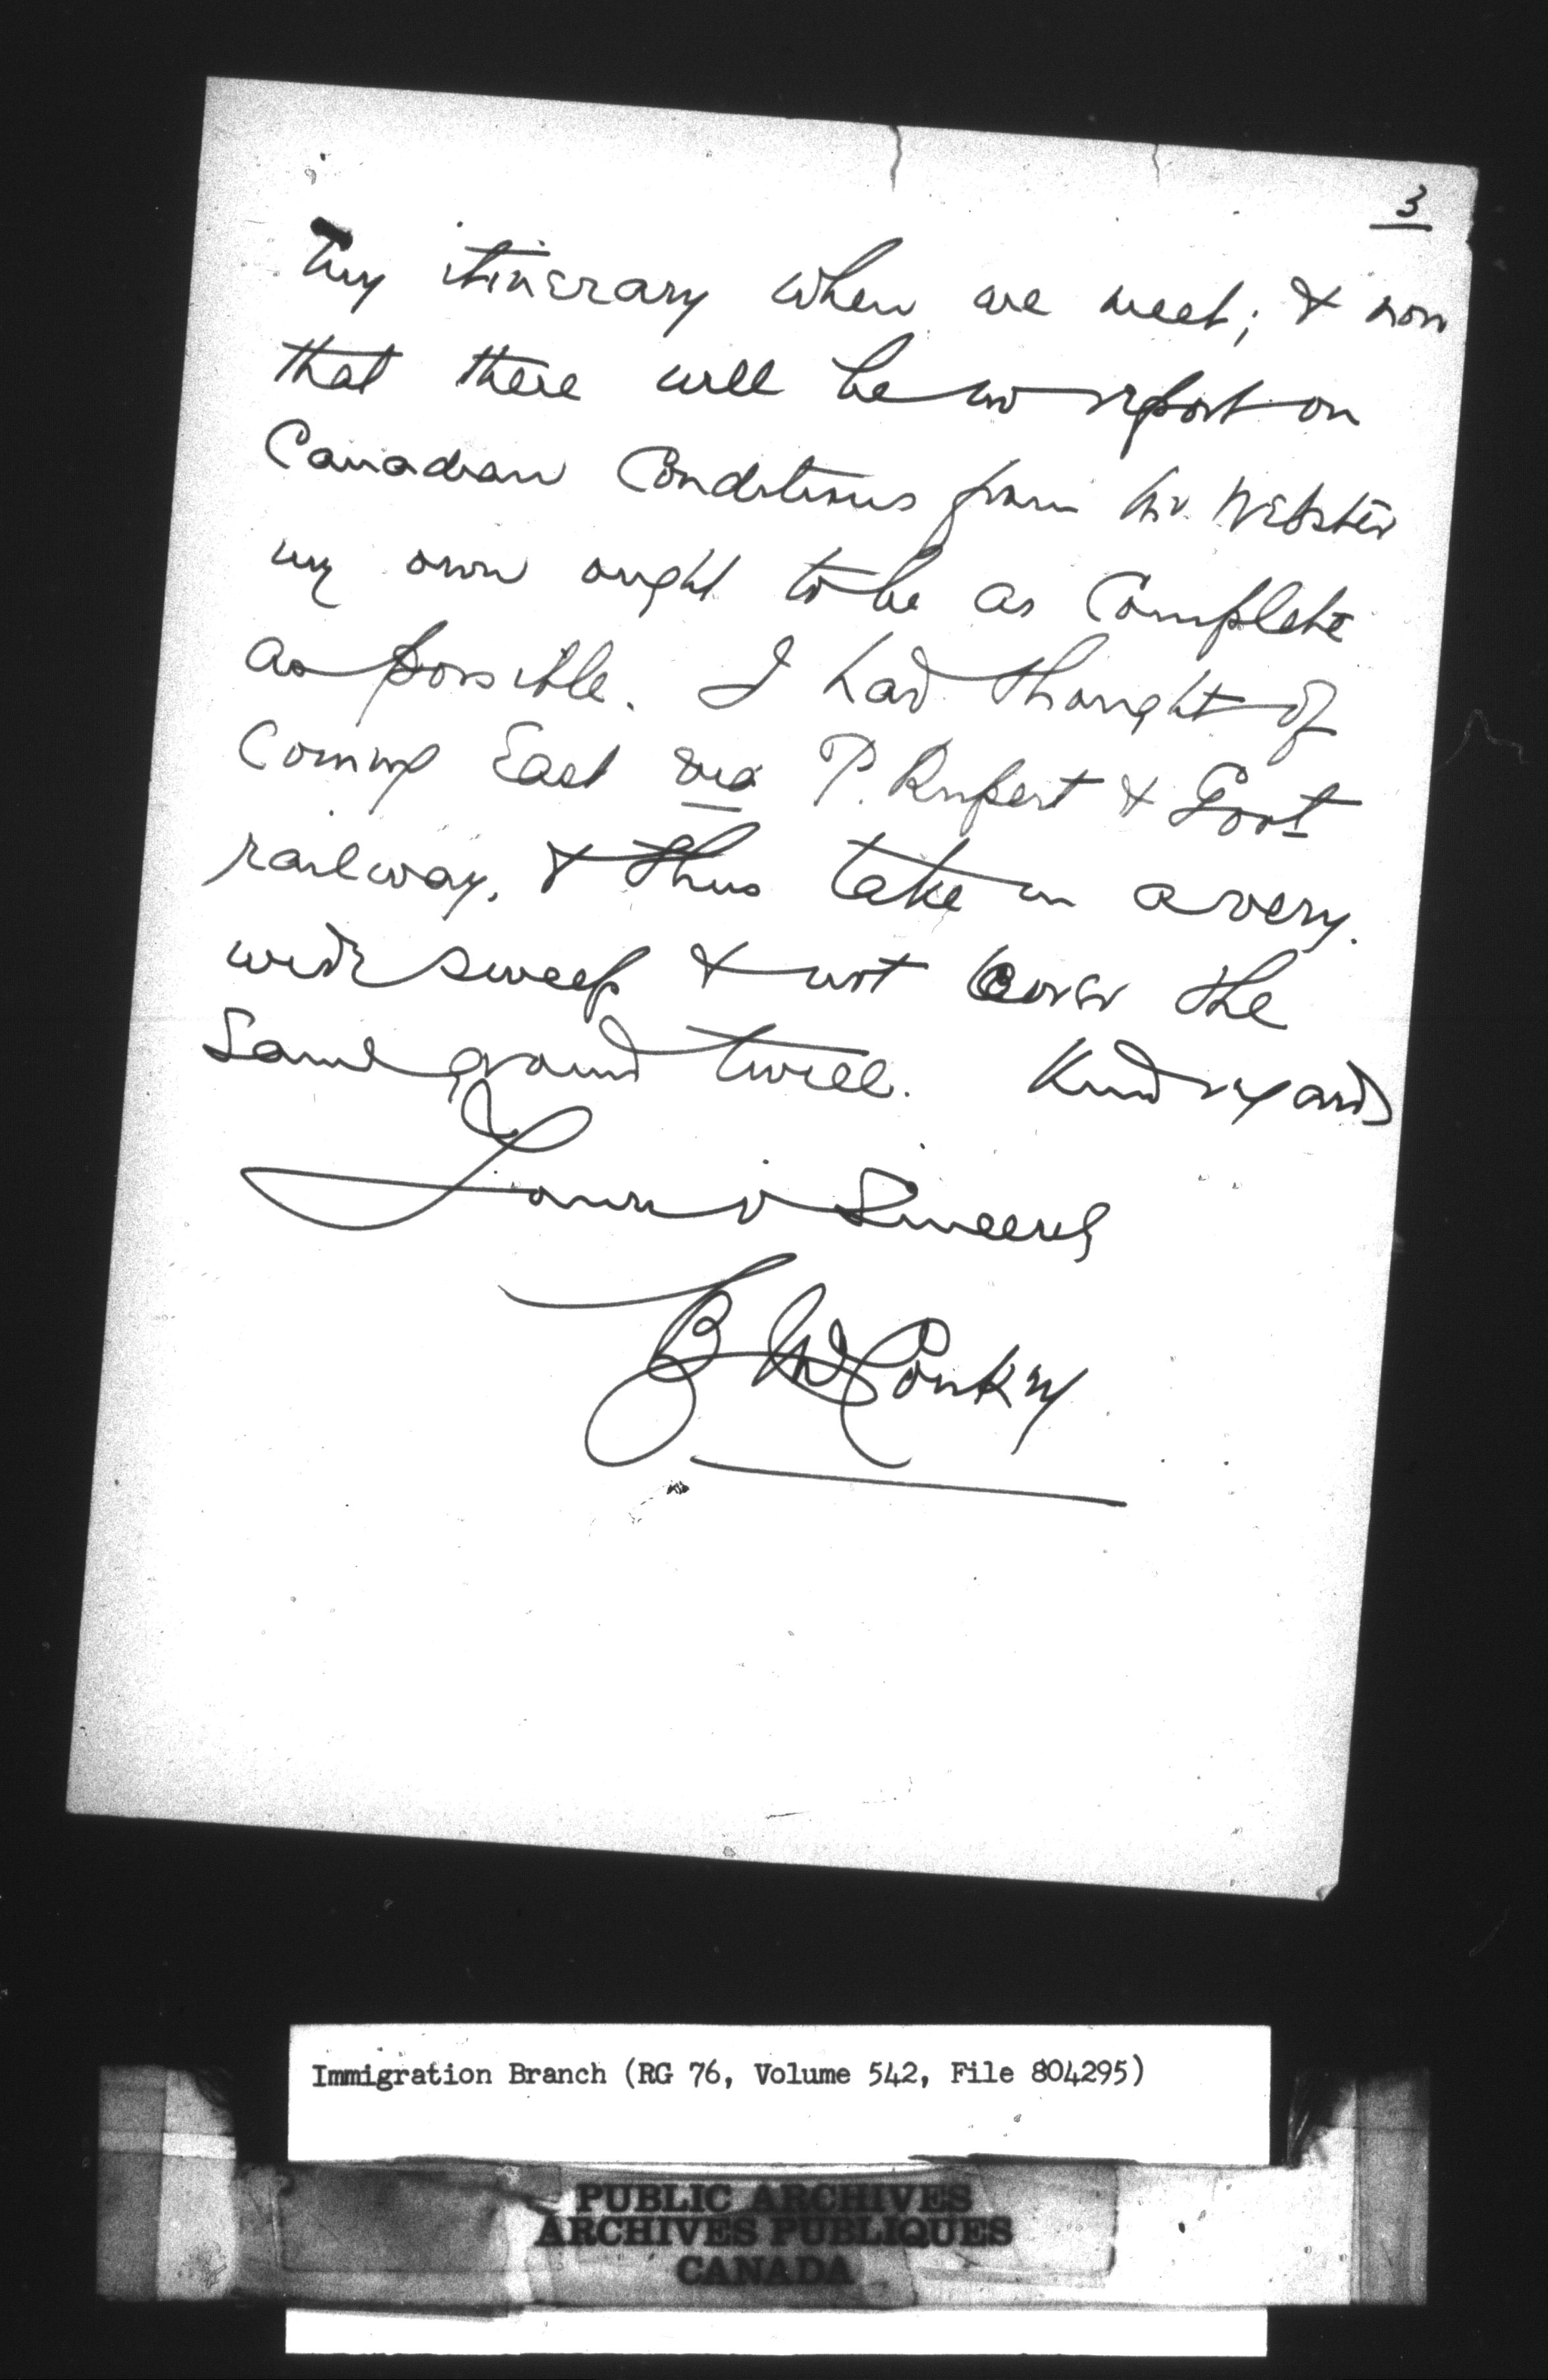 3
my itinerary when we meet; & now
that there will be no report on
Canadian Conditions from Mr. Webster
my own ought to be as Complete
as possible. I had thought of
Coming East via P. Rupert & Govt
railway, & thus take in a very
wide sweep & not cover the
Same ground twice. Kind regards
Yours v Sincerely
B McConkey
Immigration Branch (RG 76, Volume 542, File 804295)
PUBLIC ARCHIVES
ARCHIVES PUBLIQUES
CANADA